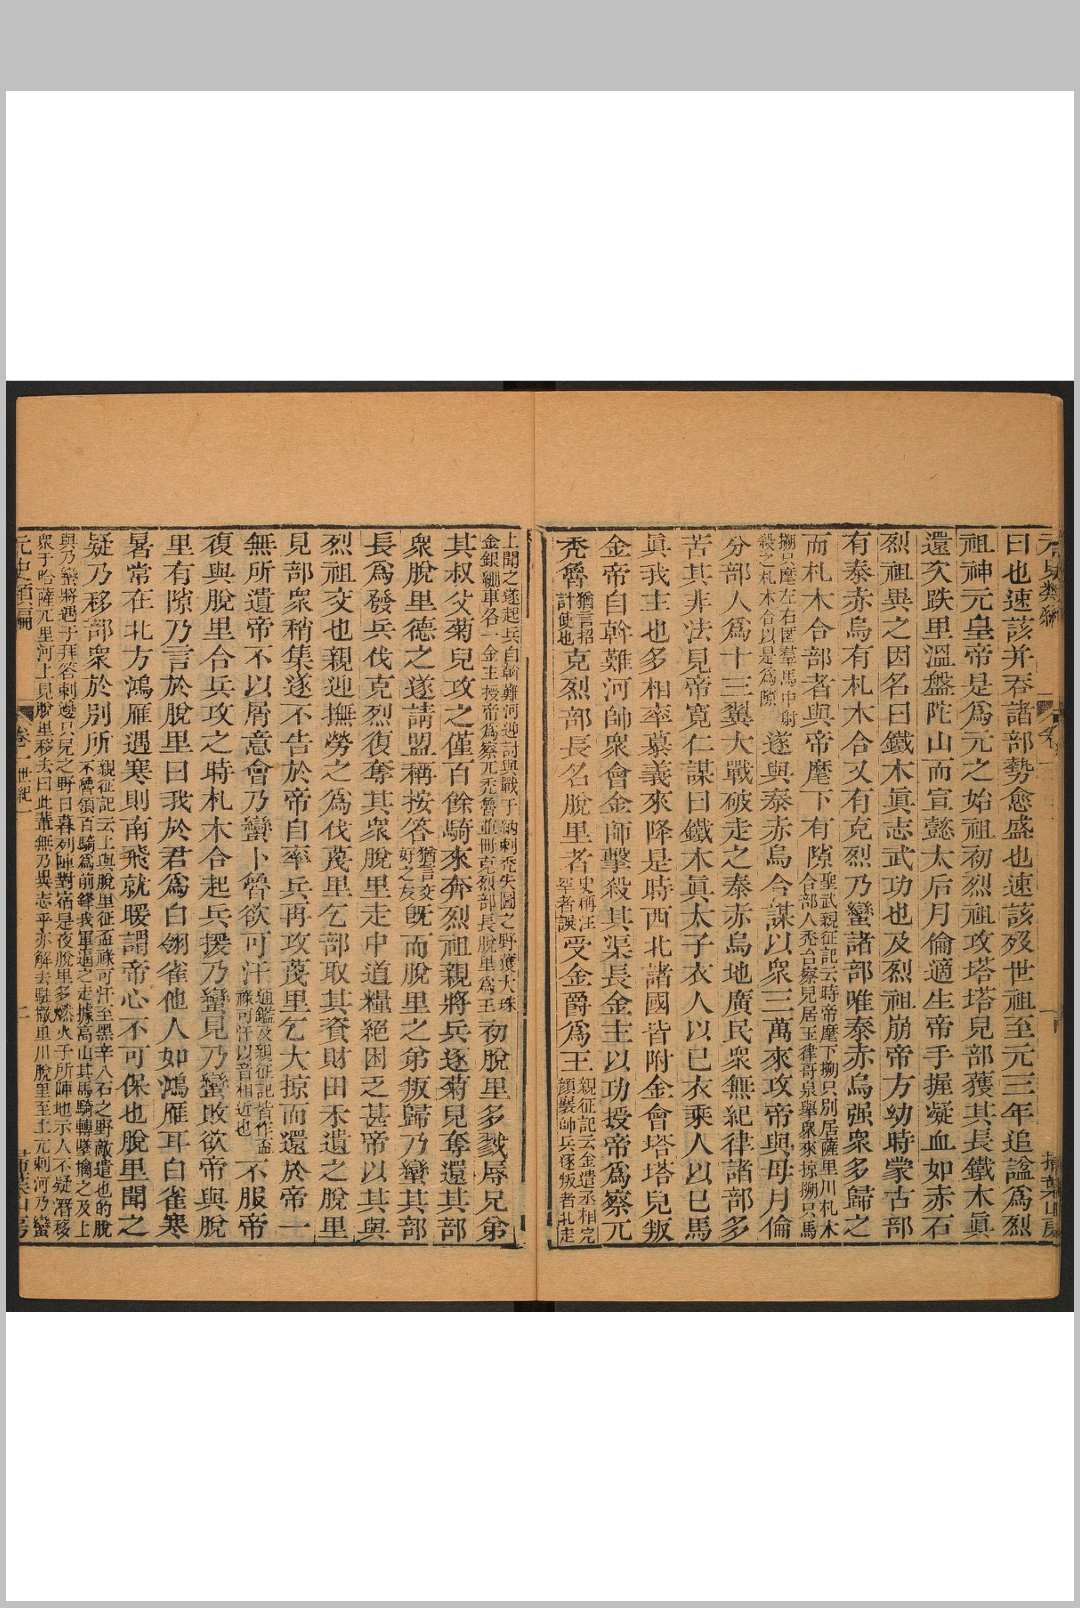 曰也速該并吞諸部勢愈盛也速該歿世祖至元三年追諡爲烈
祖神元皇帝是爲元之始祖初烈祖攻塔塔兒部獲其長鐵木眞
還次跌里溫盤陀山而宣懿太后月倫適生帝手握凝血如赤石
烈祖異之因名曰鐵木眞志武功也及烈祖崩帝方幼時蒙古部
有泰赤烏有札木合又有克烈乃蠻諸部唯泰赤烏强衆多歸之
而札木合部者與帝麾下有隙聖武親征記云時帝麾下搠只別居薩里川札木
合部人禿台察兒居玉律哥泉舉衆來掠搠只馬
搠只麾左右匿羣馬中射
殺之札木合以是爲隙遂與泰赤烏合謀以衆三萬來攻帝與母月倫
分部人爲十三翼大戰破走之泰赤烏地廣民衆無紀律諸部多
苦其非法見帝寛仁謀曰鐵木眞太子衣人以己衣乘人以己馬
眞我主也多相率慕義來降是時西北諸國皆附金會塔塔兒叛
金帝自斡難河帥衆會金師擊殺其渠長金主以功授帝爲察兀
禿魯猶言招
討使也克烈部長名脫里者史稱汪
罕者誤受金爵爲王親征記云金遣丞相完
顏襄帥兵逐叛者北走
上聞之遂起兵自斡難河迎討與戰于納剌禿失圖之野獲大珠
金銀繃車各一金主授帝爲察兀禿魯並冊克烈部長脫里爲王初脫里多戮辱兄弟
其叔父菊兒攻之僅百餘騎來奔烈祖親將兵逐菊兒奪還其部
衆脫里德之遂請盟稱按答猶言交
好之友既而脫里之弟叛歸乃蠻其部
長爲發兵伐克烈復奪其衆脫里走中道糧絕困乏甚帝以其與
烈祖交也親迎撫勞之爲伐蔑里乞部取其資財田禾遺之脫里
見部衆稍集遂不告於帝自率兵再攻蔑里乞大掠而還於帝一
無所遺帝不以屑意會乃蠻卜魯欲可汗通鑑及親征記皆作盃
祿可汗以音相近也不服帝
復與脫里合兵攻之時札木合起兵援乃蠻見乃蠻敗欲帝與脫
里有隙乃言於脫里曰我於君爲白翎雀他人如鴻雁耳白雀寒
暑常在北方鴻雁遇寒則南飛就暖謂帝心不可保也脫里聞之
疑乃移部衆於別所親征記云上與脫里征盃祿可汗至黑辛八石之野敵遣也的脫
不魯領百騎爲前鋒我軍逼之走據高山其馬鞍轉墜擒之及上
與乃蠻將遇于拜答剌邊只兒之野日暮列陣對宿是夜脫里多燃火于所陣地示人不疑潛移
衆于哈薩兀里河上見脫里移去曰此輩無乃異志乎亦解去駐撒里川脫里至土兀剌河乃蠻
元史類編
卷一 世紀一
二
掃葉山房